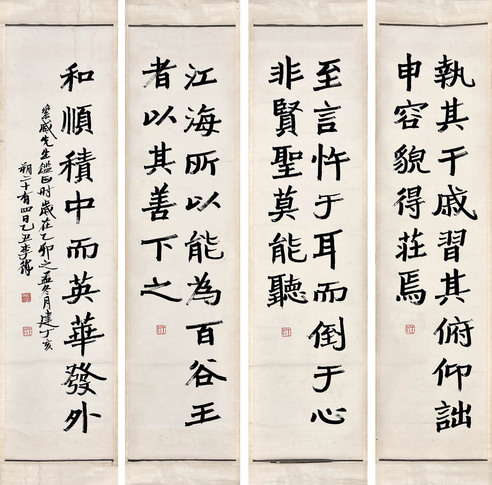 執其干戚習其俯仰詘
申容貌得莊焉
至言忤于耳而倒于心
非賢聖莫能聽
江海所以能為百谷王
者以其善下之
和順積中而英華發外
威先生鑑正时歲在乙卯之孟冬月建丁亥
朔二十有四日乙丑李